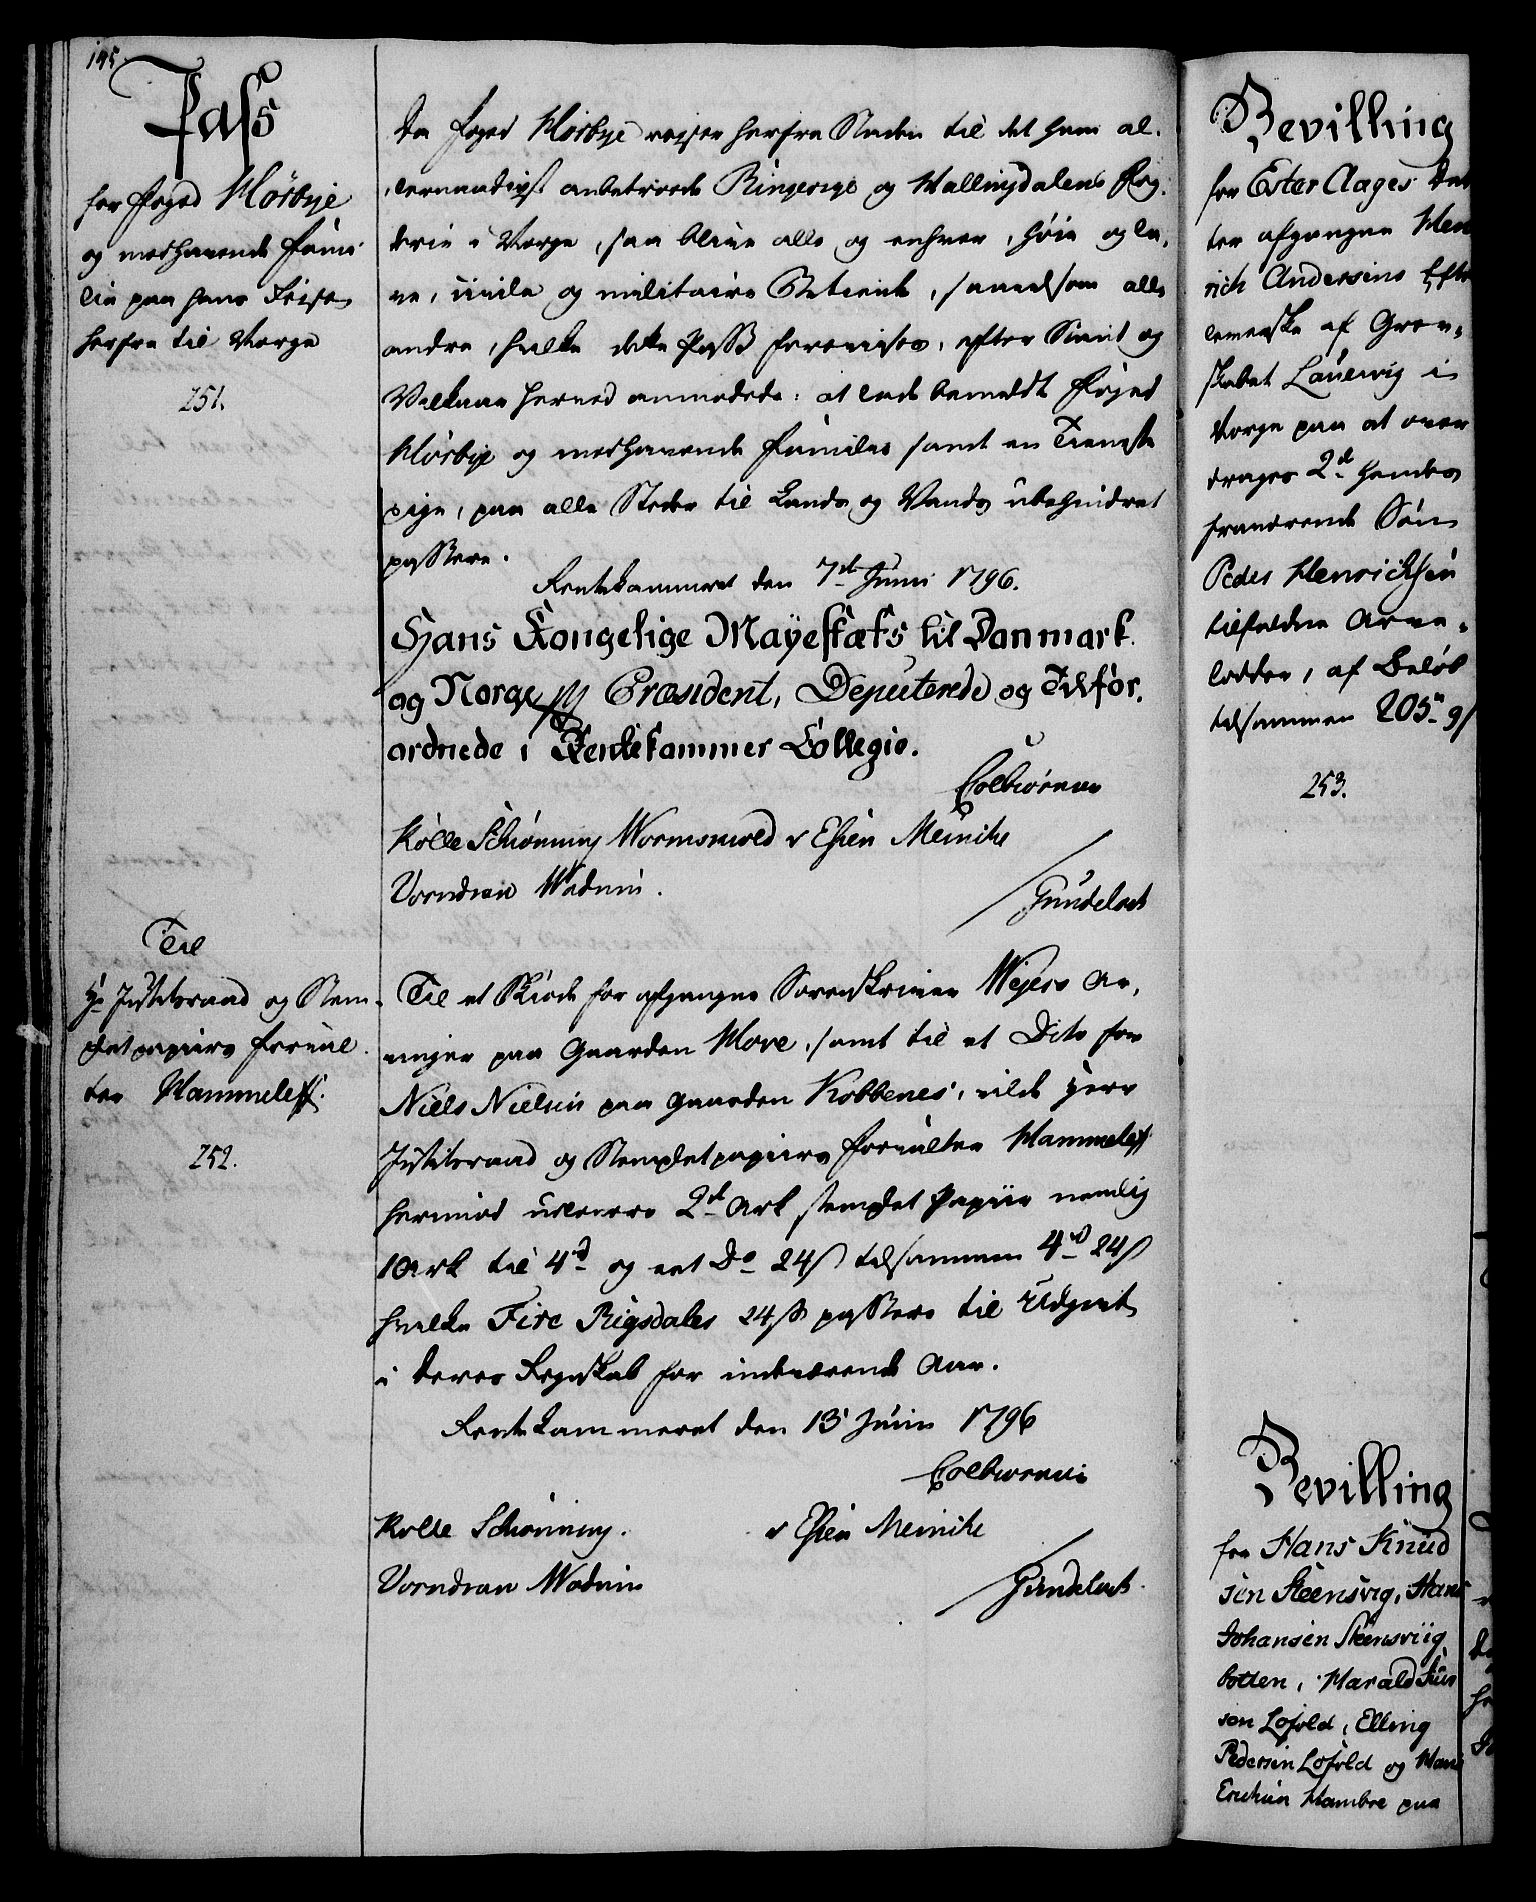 195.
Pass
for Foged Hörbye
og medhavende Fami-
lie paa hans Reise
herfra til Norge
251.
Da Foged Hörbye reiser herfra Staden til det ham al-
lernaadigst anbetroede Ringerige og Hallingdalens Fog-
derie i Norge, saa blive alle og enhver, høie og la-
ve, civile og militaire Betiente, saavelsom alle
andre, hvilke dette Pass forevises, efter Stand og
Vilkaar herved anmodede: at lade bemeldte Foged
Hörbye og medhavende Familie samt en Tieneste
pige, paa alle Steder til Lands og Vands ubehindret
passere.
Rentekammeret den 7de Junii 1796.
Hans Kongelige Mayestæts til Danmark
og Norge p.p. Præsident, Deputerede og Tilfor-
ordnede i Rentekammer Collegio.
Colbiørnsen
Rølle Schiønning Wormskiold v Essen Meinike
Vorndran Wadum.
Gundelach
Til
Hr Justitsraad og Stem-
pletpapiirs Forval-
ter Hammeleff.
252.
Til et Skiøde for afgangne Sorenskriver Weyers Ar-
vinger paa Gaarden Hove, samt til et Dito for
Niels Nielsen paa Gaarden Kobbenes, vilde Herr
Justitsraad og Stempletpapiirs Forvalter Hammeleff
hermed udlevere 2de Ark stemplet Papiir nemlig
1 Ark til 4rd og eet Do 24ß tilsammen 4rd 24ß
hvilke Fire Rigsdaler 24ß passere til Udgivt
i Deres Regnskab for indeværende Aar.
Rentekammeret den 13 Junii 1796
Colbiørnsen
Rølle Schiønning. v Essen Meinike
Vorndran Wadum
Gundelach.
Bevilling
for Ester Aages Dat
ter afgangne Hen
rich Andersens Efter
leverske af Grev-
skabet Laurvig i
Norge paa at over
drages 2de hendes
fraværende Søn
Peder Henrichsen
tilfaldne Arve-
lodder, af Beløb
tilsammen 205rd
253.
Bevilling
for Hans Knud
sen Steensvig, Hans
Johansen Steensviig
botten, Harald
sen Lofold, Elling
Pedersen Lofold og Hans
Erichsen Hambre paa